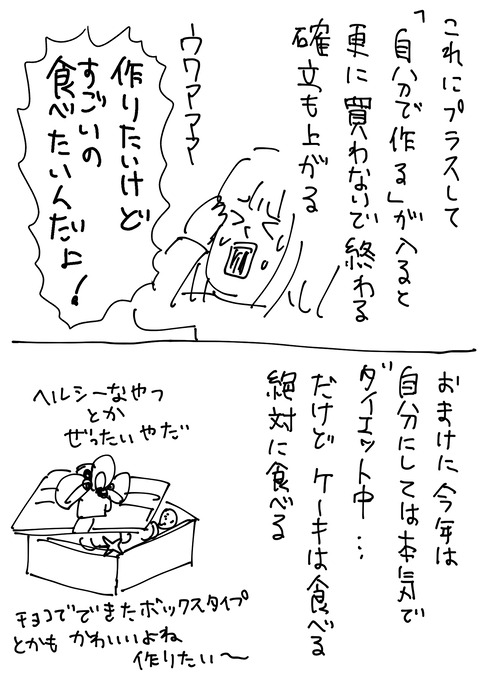 これにプラスして
「自分で作る」が入ると
更に買わないで終わる
確立も上がる
ウワァァァァ
作りたいけど
すごいの
食べたいんだよ!
おまけに今年は
自分にしては本気で
ダイエット中…
だけどケーキは食べる
絶対に食べる
ヘルシーなやつ
とか
ぜったいやだ
チョコでできたボックスタイプ
とかもかわいいよね
作りたい〜